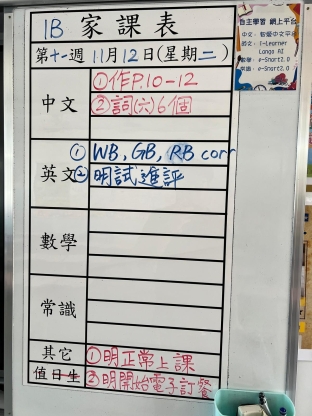 1B 家課表
第十一週 11月12日(星期二)
中文
①作P.10-12
②詞(六)6個
英文
① WB, GB, RB corr
②明試進評
數學
常識
其它
①明正常上課
值日生
②明開始電子訂餐
自主學習 網上平台
中文: 智愛中文平台
英文: i-Learner
Longo AI
數學: e-Smart2.0
常識: e-Smart2.0